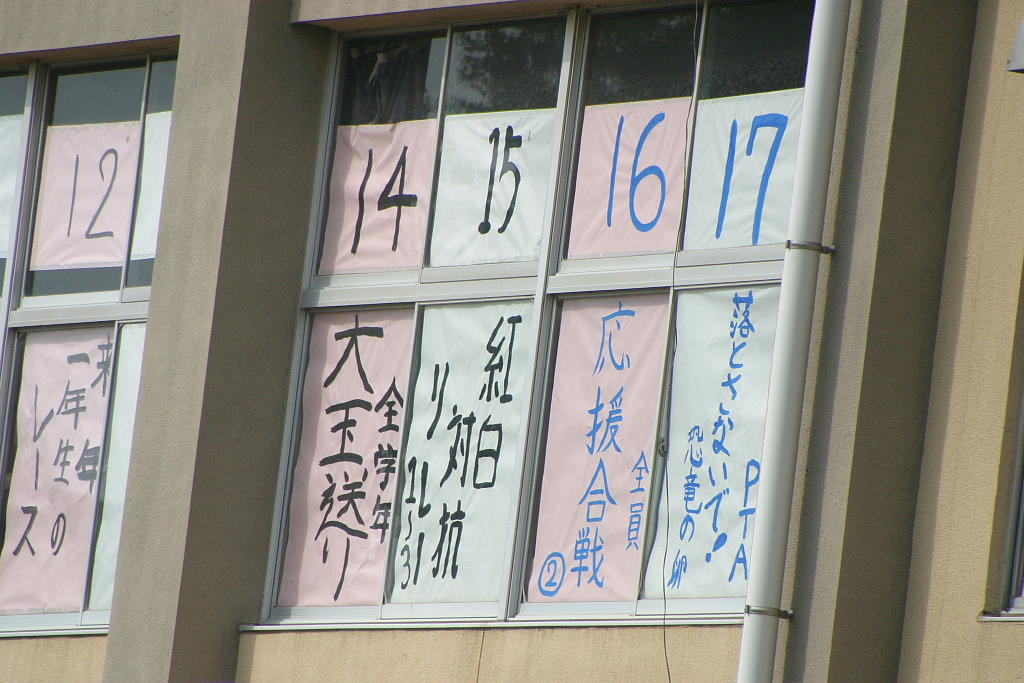 12
来年
一年生の
レース
14
全学年
大玉送り
15
紅白
対抗
リレー
1~3
16
全員
応援合戦
②
17
落とさないで!
恐竜の卵
PTA